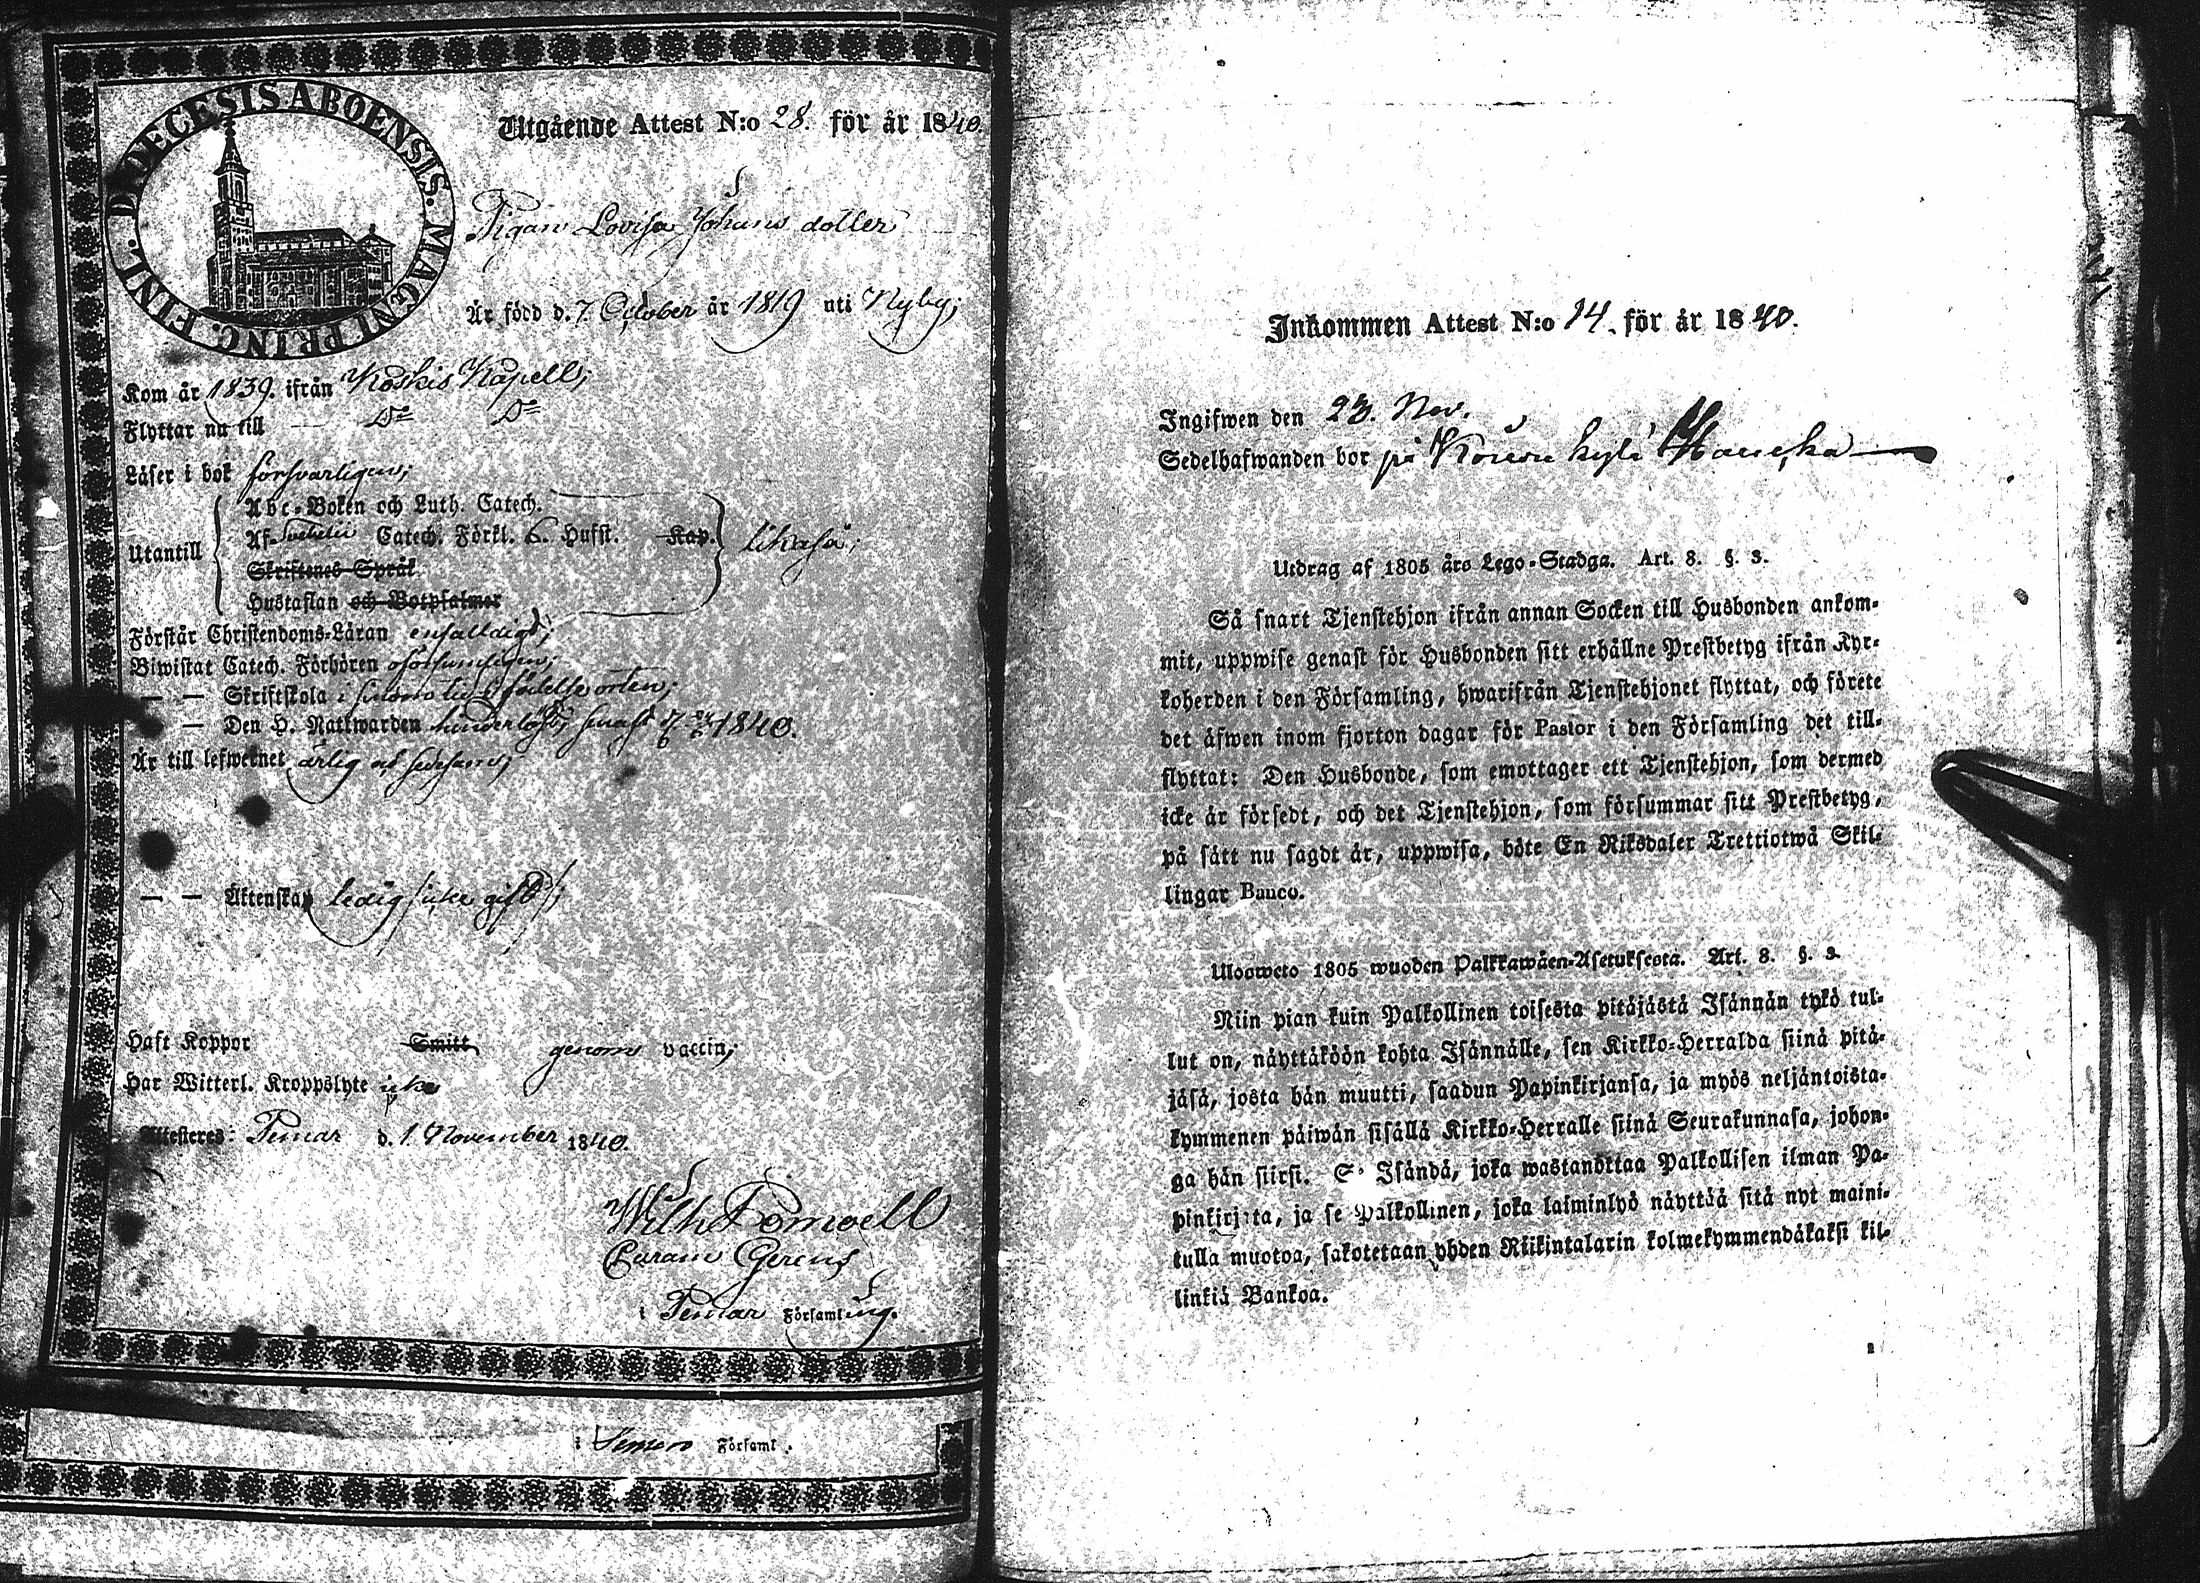 DIOECESIS ABOENSIS. MAGNI PRINC. FINL.
Utgående Attest N:o 28. för år 1840.
Pigan Lovisa Johans dotter
Är född d. 7. October år 1819 uti Nyby;
Kom år 1839. ifrån Koskis Kapell;
Flyttar nu till D:o D:o
Läser i bok försvarligen;
Utantill
Abc-Boken och Luth. Catech.
Af Svebelii Catech. Förkl. 6. Hufst. Kap.
Skriftenes Språk
Hustaflan och Botpsalmer
likaså;
Förstår Christendoms-Läran enfalldigt;
Biwistat Catech. Förhören oförsumligen;
— — Skriftskola i födelseorten;
— Den H. Nattwarden hinderlöst, senast 1840.
Är till lefwernet ärlig och
— — Äktenskap ledig /icke gift/;
Haft Koppor Smitt genom vaccin;
Har Witterl. Kroppslyte icke
Attesteres: Pemar d. 1. November 1840.
Wilh
Curam Gerens
i Pemar Församling.
i Församl.
Inkommen Attest N:o 24. för år 1840.
Ingifwen den 23. Nov.
Sedelhafwanden bor på
Utdrag af 1805 års Lego-Stadga. Art. 8. §. 3.
Så snart Tjenstehjon ifrån annan Socken till Husbonden ankom-
mit, uppwise genast för Husbonden sitt erhållne Prestbetyg ifrån Kyr-
koherden i den Församling, hwarifrån Tjenstehjonet flyttat, och förete
det äfwen inom fjorton dagar för Pastor i den Församling det till-
flyttat: Den Husbonde, som emottager ett Tjenstehjon, som dermed
icke är försedt, och det Tjenstehjon, som försummar sitt Prestbetyg,
på sätt nu sagdt är, uppwisa, böte En Riksdaler Trettiotwå Skil-
lingar Banco.
Ulosweto 1805 wuoden Palkkawäen-Asetuksesta. Art. 8. §. 3.
Niin pian kuin Palkollinen toisesta pitäjästä Isännän tykö tul-
lut on, näyttäköön kohta Isännälle, sen Kirkko-Herralda siinä pitä-
jäsä, josta hän muutti, saadun Papinkirjansa, ja myös neljäntoista-
kymmenen päiwän sisällä Kirkko-Herralle siinä Seurakunnasa, johon-
ga hän siirsi. Se Isändä, joka wastanottaa Palkollisen ilman Pa-
pinkirjata, ja se Palkollinen, joka laiminlyö näyttää sitä nyt maini-
tulla muotoa, sakotetaan yhden Riikintalarin kolmekymmendäkaksi kil-
linkiä Bankoa.